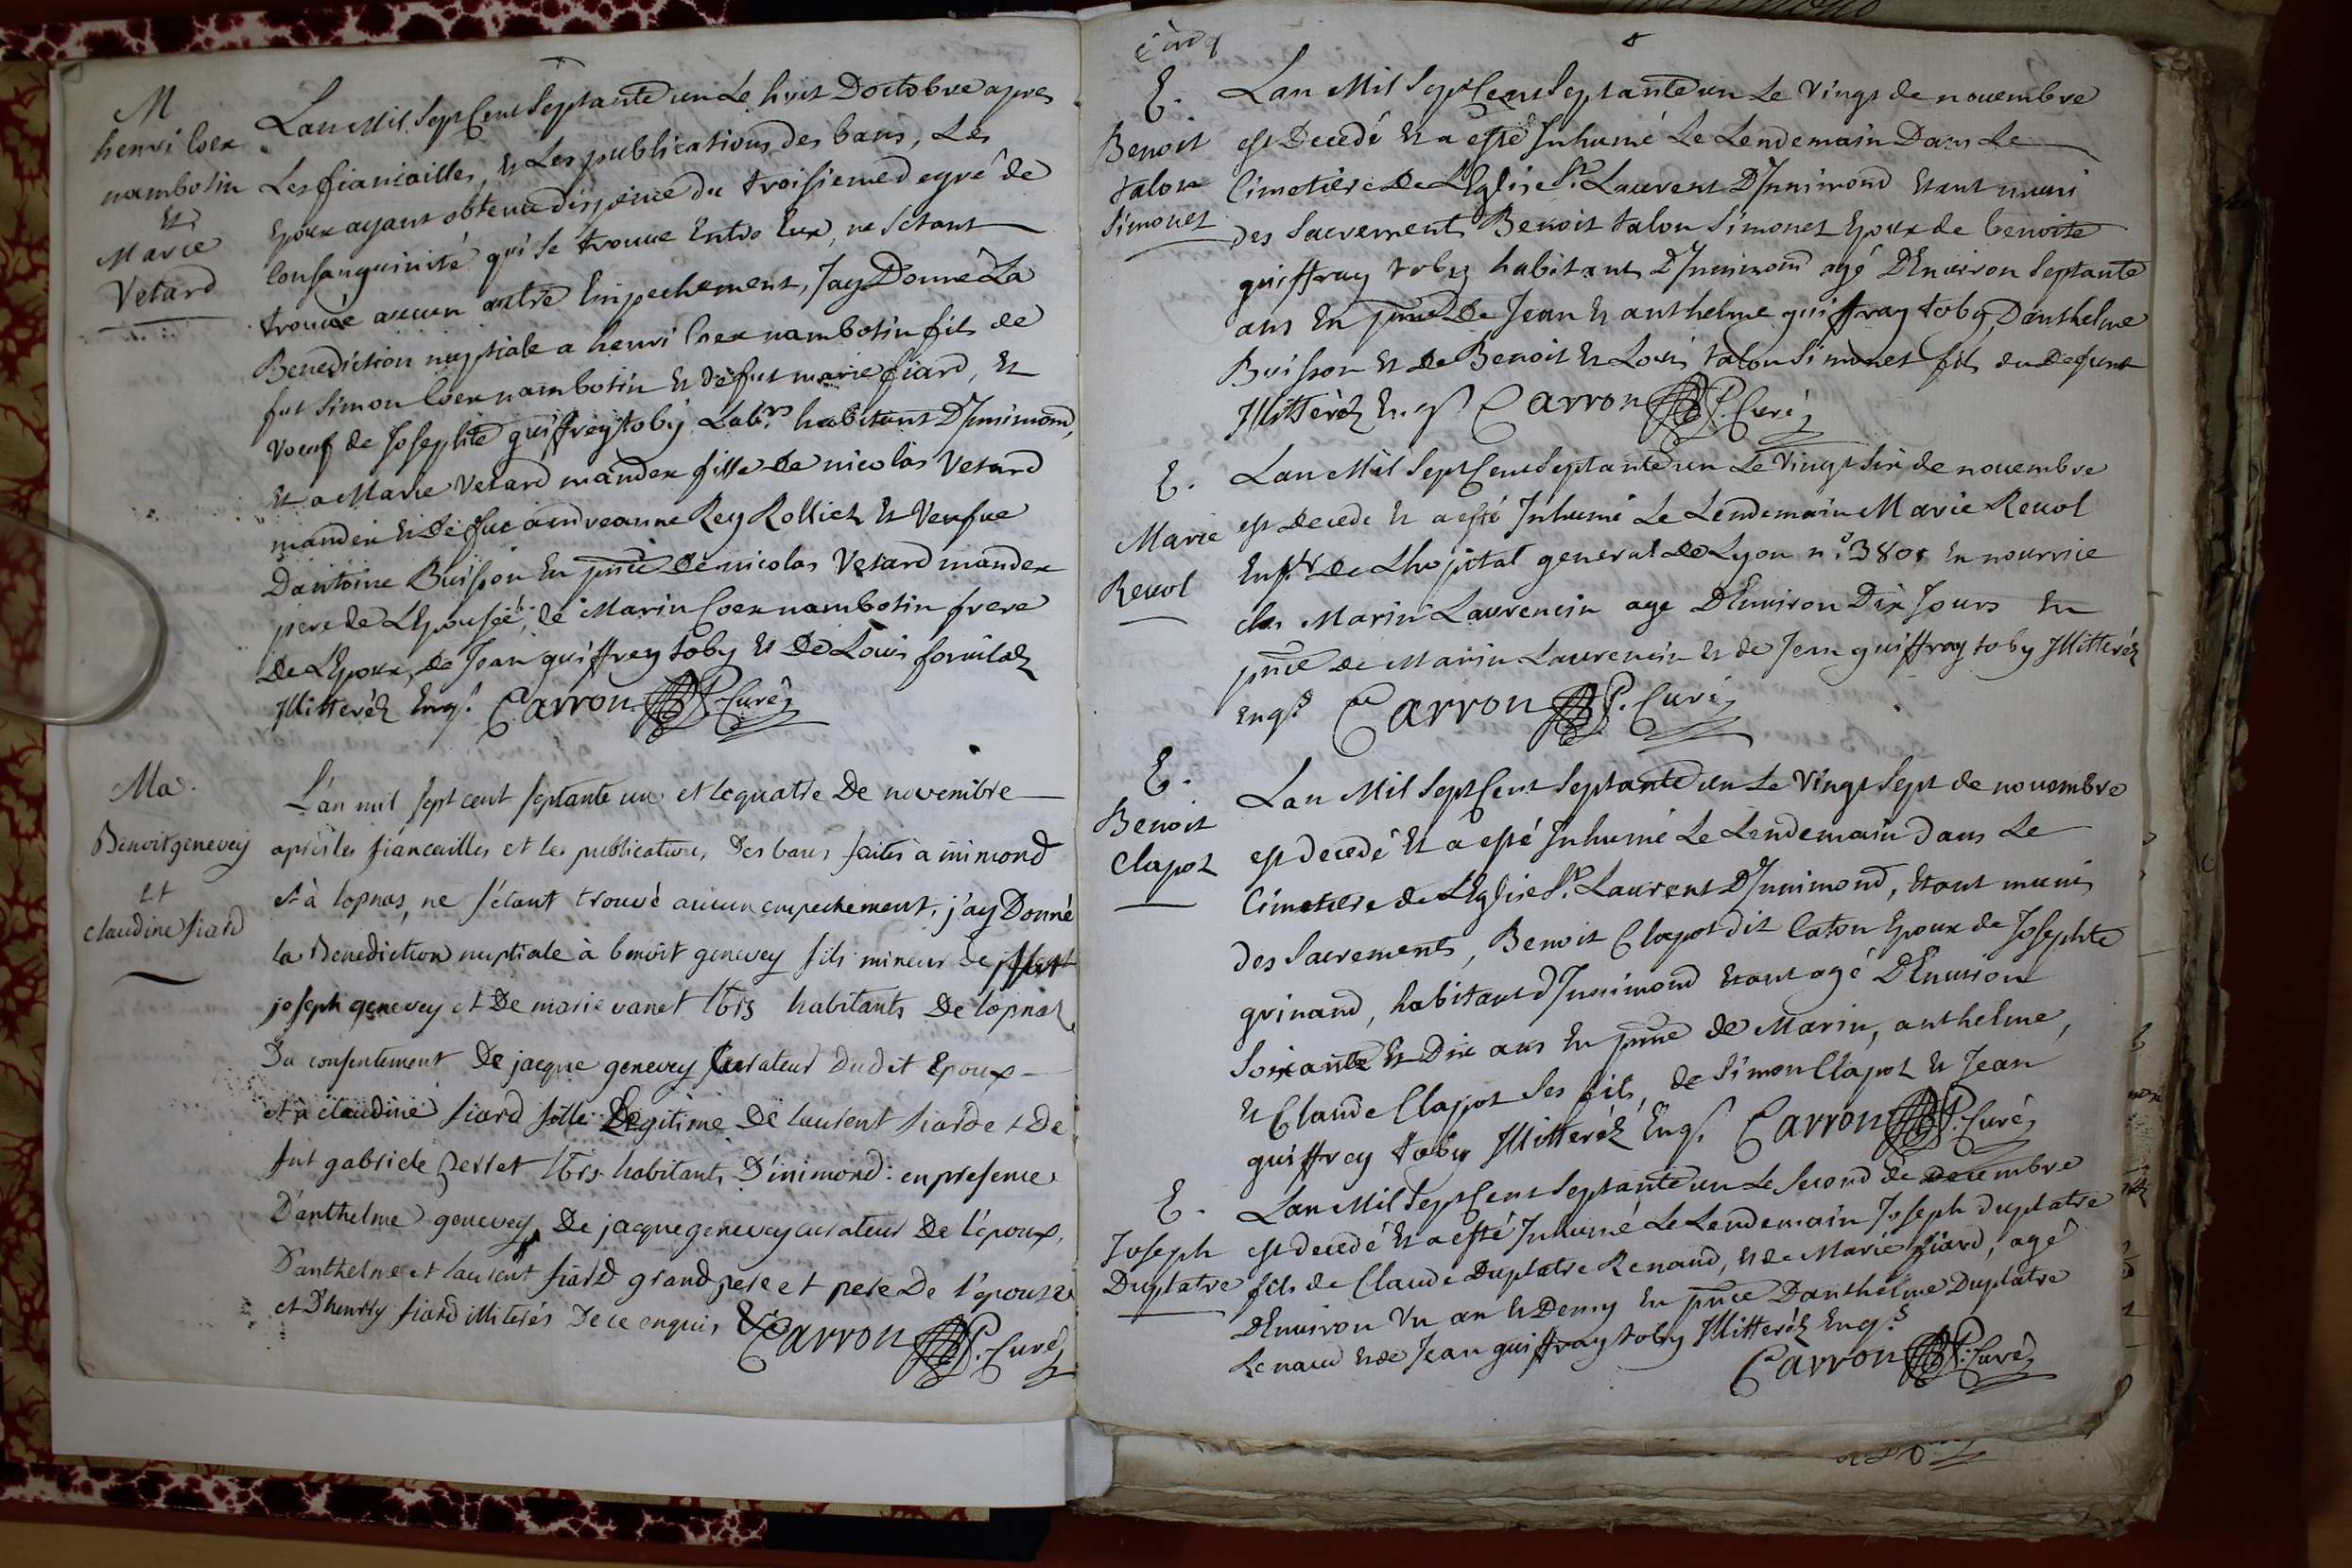 M
henri Coex
nambotin
Et
Marie
Vetard
Lan Mil Sept Cent Septante un Le huit Doctobre apres
Les fiancailles, Et Les publications des bans, Les
Epoux ayant obtenu dispence du troisieme degré de
Consanguinité qui Se trouve Entre Eux, ne Setant
trouvé aucun autre Empechement, Jay Donné La
Benediction nuptiale a henri Coex nambotin fils de
fut Simon Coex nambotin Et de fut marie fiard, Et
Voeuf de Josephte guiffrey toby Lab.rs habitant DJnnimond,
Et a Marie Vetard mandex fille de nicolas Vetard
mandex Et de fue andreanne Rey Rollich Et Veufue
Dantoine Buisson En pnce de nicolas Vetard mandex
pere de LEpousée, de Marin Coex nambotin frere
de LEpoux, de Jean guiffrey toby Et De Louis
Jllitteréz Enq.s Carron P. Curé
Ma.
Benoit genevey
et
claudine fiard
L'an mil sept cent septante un et le quatre De novembre
après les fiancailles et les publications Des bans faites a inimond
et à lopnas, ne s'étant trouvé aucun empechement, j'ay Donné
la Benediction nuptiale à benoit genevey fils mineur de
joseph genevey et De marie vanet lbrs habitants De lopnas,
Du consentement De jacque genevey Curateur Dudit Epoux
et à claudine fiard fille Legitime De laurent fiard et De
fut gabriele perret lbrs habitants D'inimond: en presence
D'anthelme genevey, De jacque genevey curateur De l'époux,
D'anthelme et laurent fiard grand pere et pere De l'épouse
et D'henry fiard illiterés De ce enquis &c Carron P. Curé
E.
Benoit
talon
Simonet
Lan Mil Sept Cent Septante un Le Vingt de nouembre
est Decedé Et a esté Jnhumé Le Lendemain Dans Le
Cimetiere De LEglise St. Laurent DJnnimond Etant muni
des Sacrements Benoit talon Simonet Epoux de benoite
guiffray toby habitant DJnnimond agé DEnuiron Septante
ans En pnce De Jean Et anthelme guiffray toby, Danthelme
Buisson Et de Benoit Et Louis talon Simonet fils du Defunt
Jllitteréz Enq.s Carron P. Curé
E.
Marie
Reuol
Lan Mil Sept Cent Septante un Le Vingt Six de nouembre
est Decede Et a esté Jnhumé Le Lendemain Marie Reuol
Enf.t de Lhopital general de Lyon n.o 3801 En nourrice
ches Marin Laurencin age DEnuiron Dix Jours En
pnce de Marin Laurencin Et de Jean guiffray toby Jllitteréz
Enq.s Carron P. Curé
E.
Benoit
Clapot
Lan Mil Sept Cent Septante un Le Vingt Sept de nouembre
est decedé Et a esté Jnhumé Le Lendemain dans Le
Cimetiere de LEglise St. Laurent DJnnimond, Etant muni
des Sacrements, Benoit Clapot dit Caton Epoux de Josephte
guinand, habitant dJnnimond Etant agé DEnuiron
Soixante Et Dix ans En pnce de Marin, anthelme,
Et Claude Clapot Ses fils, de Simon Clapot Et Jean
guiffrey toby Jllitteréz Enq.s Carron P. Curé
E.
Joseph
Duplatre
Lan Mil Sept Cent Septante un Le Second de Decembre
est decedé Et a esté Jnhumé Le Lendemain Joseph duplatre
fils de Claude Duplatre Renaud, Et de Marie fiard, agé
DEnuiron Vn an Et Demy En pnce Danthelme Duplatre
Renaud Et de Jean guiffray toby Jllitteréz Enq.s
Carron P. Curé